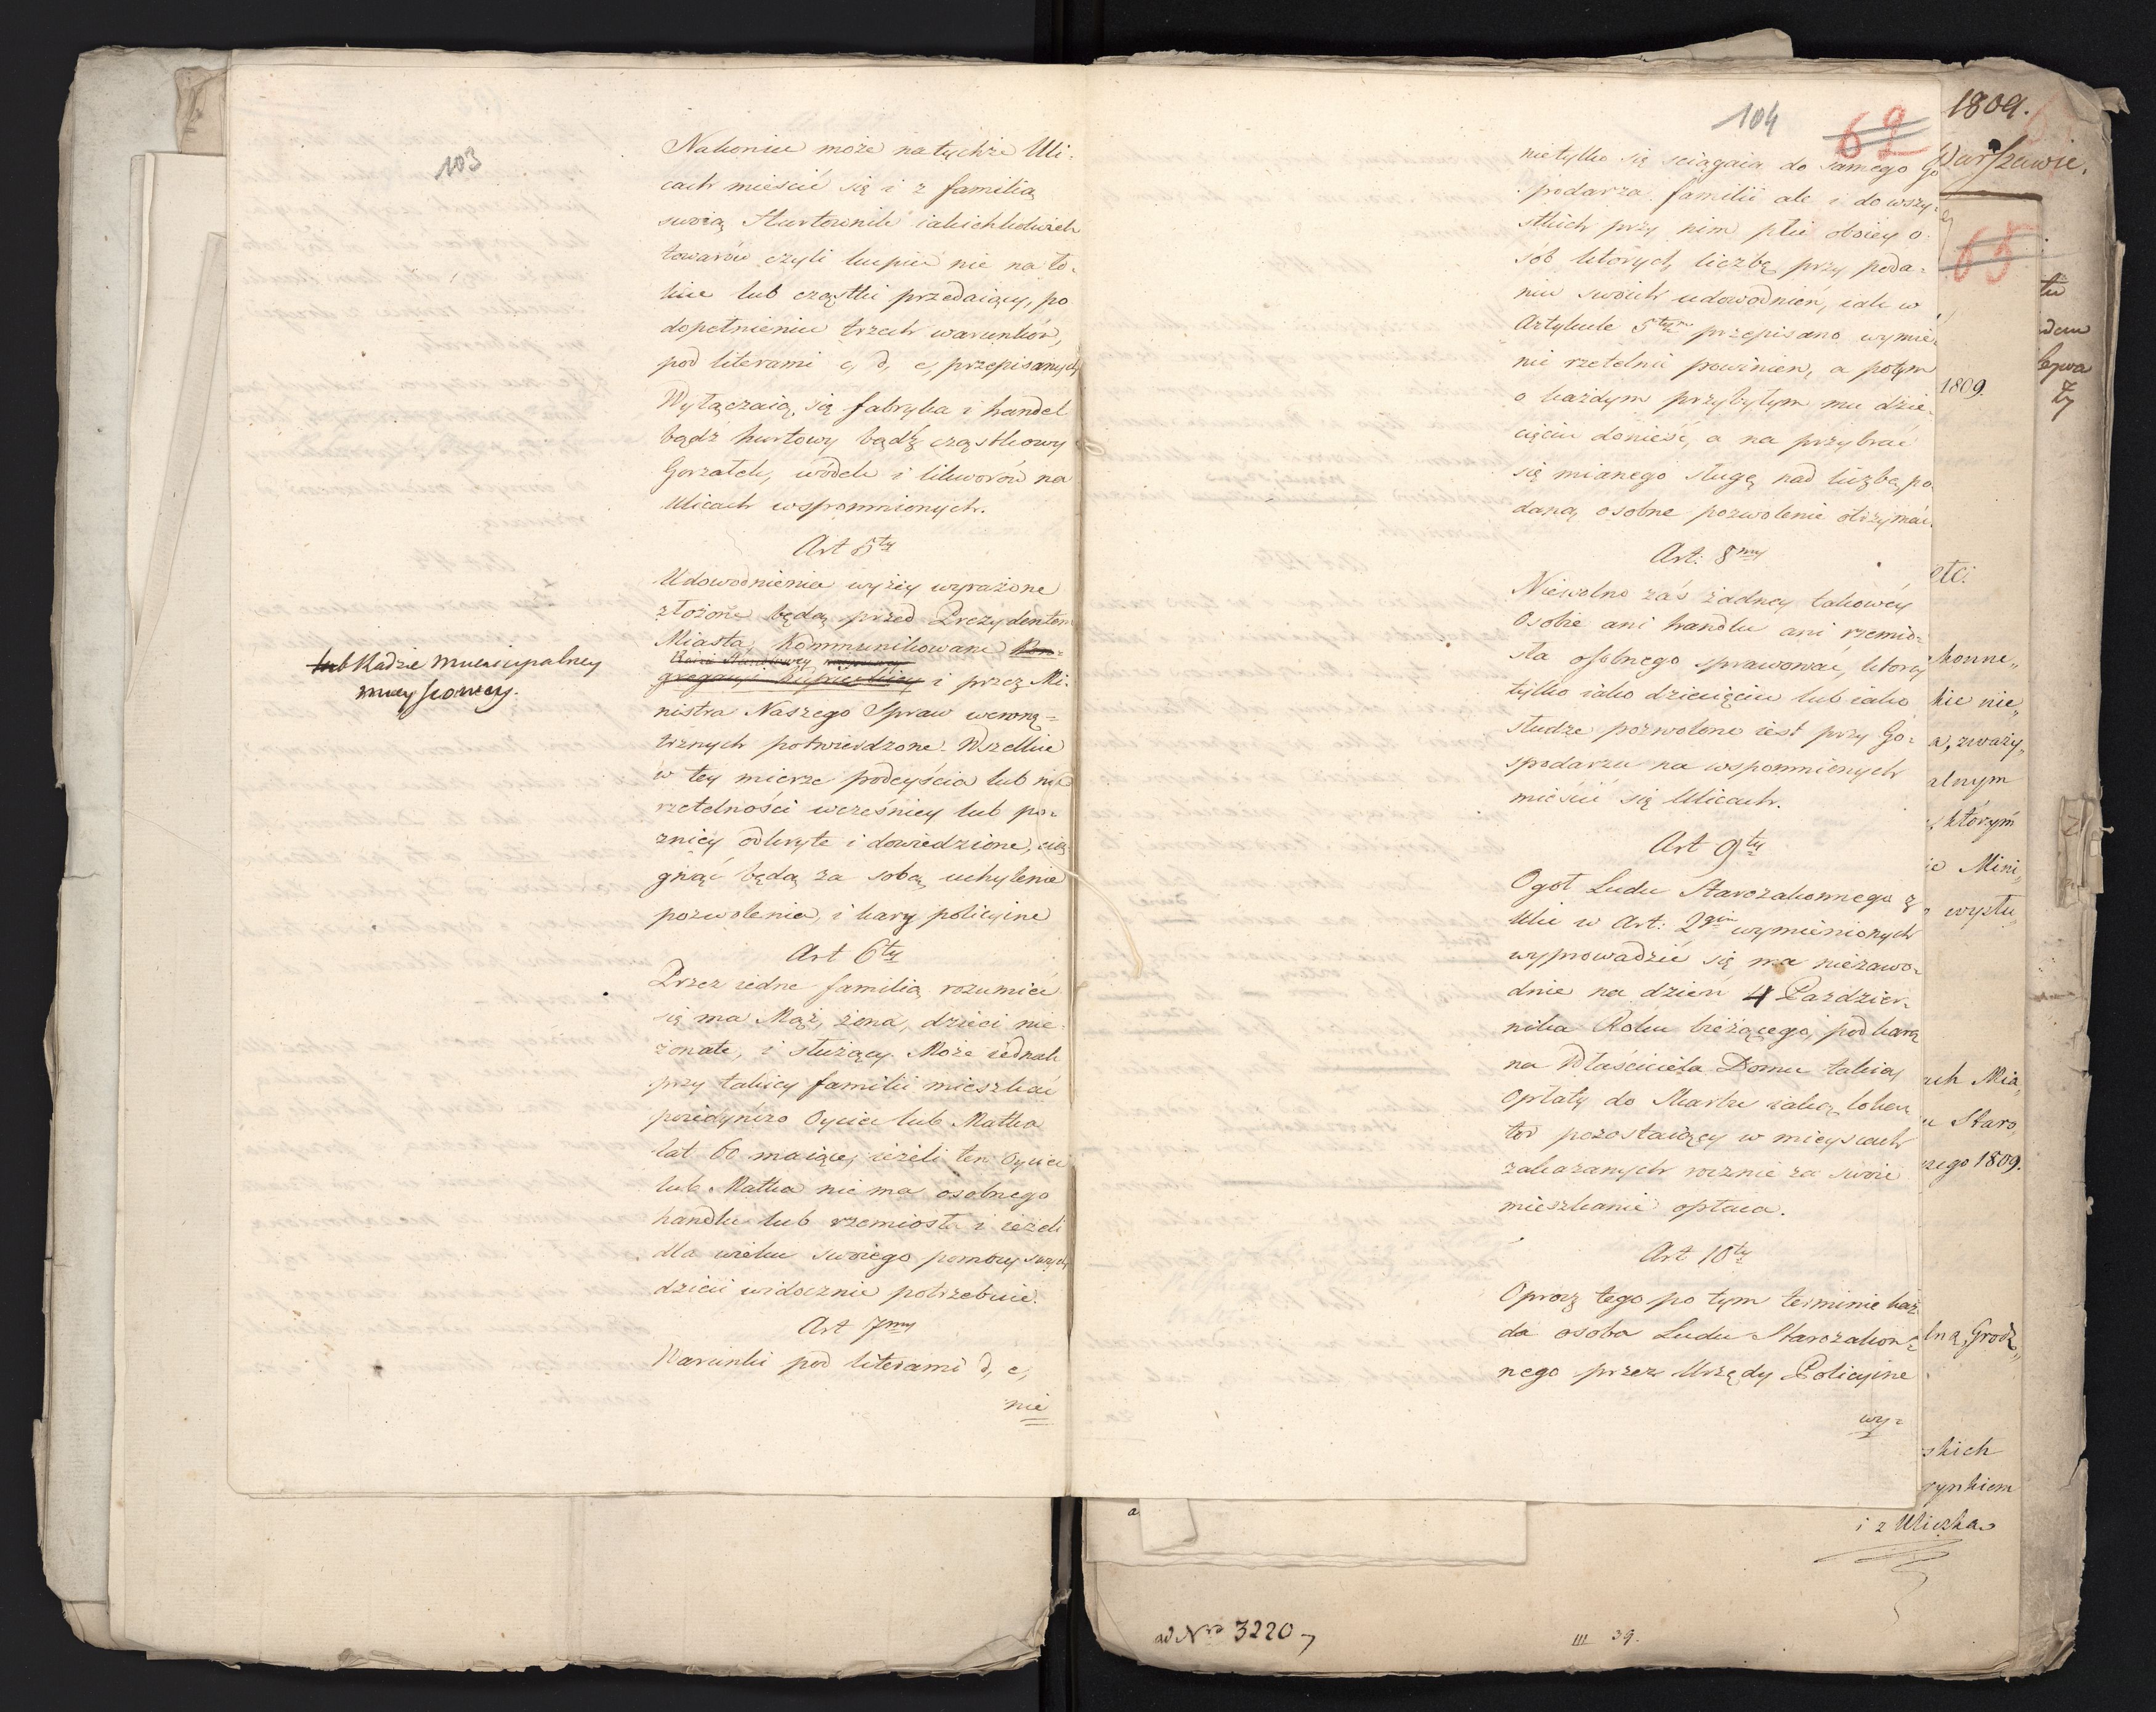 103
Nakoniec może na tychże Uli-
cach mieścić się i z familią
swoią Hurtownik iakichkolwiek
towarów czyli kupiec nie na ło-
kcie lub cząstki przedaiący, po
dopełnieniu trzech warunków,
pod literami c, d, e, przepisanych
Wyłączaią się fabryka i handel
bądź hurtowy bądź cząstkowy
Gorzałek, wódek i likworów na
Ulicach wspomnionych.
Art 5ty
Udowodnienia wyżey wyrażone
złożone będą przed Prezydentem
Miasta, Kommunikowane Kon-
Radzie Stanowey
gregacyi Kupieckiey i przez Mi-
lub Radzie Municypalney
mieyscowey.
nistra Naszego Spraw wewnę-
trznych potwierdzone. Wszelkie
w tey mierze podeyścia lub nie
rzetelności wcześniey lub po-
zniey odkryte i dowiedzione, cią-
gnąć będą za sobą uchylenie
pozwolenia, i kary policyine
Art 6ty
Przez iedne familią rozumieć
się ma Mąż, żona, dzieci nie-
żonate, i służący. Może iednak
przy takiey familii mieszkać
poiedynczo Oyciec lub Matka
lat 60 maiące, ieżeli ten Oyciec
lub Matka nie ma osobnego
handlu lub rzemiosła i ieżeli
dla wieku swoiego pomocy swych
dzieci widocznie potrzebuie.
Art 7my
Warunki pod literami d, e,
nie
104
62
nietylko się sciągaią do samego Go
spodarza familii ale i do wszy-
stkich przy nim płci oboiey o-
sób których liczbę przy poda-
niu swoich udowodnień, iak w
Artykule 5tym przepisano wymie-
nić rzetelnie powinien, a potym
o każdym przybyłym mu dzie-
cięciu donieść, a na przybrać
się mianego sługę nad liczbę po
daną osobne pozwolenie otrzymać.
Art: 8my
Niewolno zaś żadney takowey
Osobie ani handlu ani rzemio-
sła osobnego sprawować, którey
tylko iako dziecięciu lub iako
słudze pozwolone iest przy Go-
spodarzu na wspomnionych
mieścić się Ulicach.
Art 9ty
Ogoł Ludu Starozakonnego z
Ulic w Art: 2gim wymienionych
wyprowadzić się ma niezawo-
dnie na dzień 4 Pazdzier-
nika Roku bieżącego, pod karą
na Właściciela Domu takiey
Opłaty do Skarbu iaką loka-
tor pozostaiący w mieyscach
zakazanych rocznie za swoie
mieszkanie opłaca.
Art 10ty
Oprocz tego po tym terminie każ
da osoba Ludu Starozakon-
nego przez Urzędy Policyine
wy-
1809.
Warszawie.
65
1809.
etc:
honne„
kie nie„
a, zważy„
alnym
którym
ie Mini„
wystu„
uch Mia„
u Staro„
ego 1809.
lną, Grodz„
skich
rynkiem
i z Uliczką
ad Nro 3220
III 39.